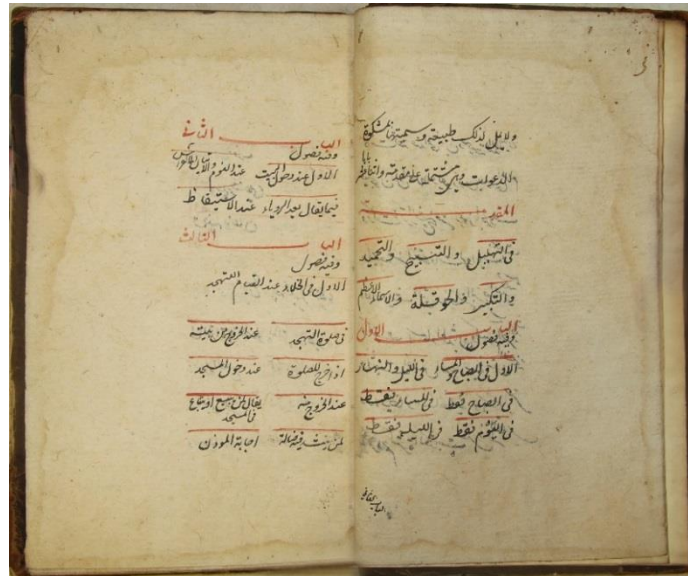 ولايل لذلك طبيعته وسميته بمشكوة
الدعوات وهي مشتملة على مقدمة واثنا عشر بابا
المقدمة
في التهليل والتسبيح والتحميد
والتكبير والحوقلة والاسماء الاعظم
الباب الاول
وفيه فصول
الاول في الصباح والمساء في الليل والنهار
في الصباح فقط في المساء فقط
في اليوم فقط في الليل فقط
الباب الثاني
وفيه فصول
الاول عند دخول البيت عند النوم والانتباه
فيما يقال بعد الرؤياء عند الاستيقاظ
الباب الثالث
وفيه فصول
الاول في الخلاء عند القيام للتهجد
في صلوة التهجد عند الخروج من بيته
اذا خرج للصلوة عند دخول المسجد
عند الخروج منه يقال لمن يبيع او يبتاع
في المسجد
لمن ينشد فيه ضالة اجابة الموذن